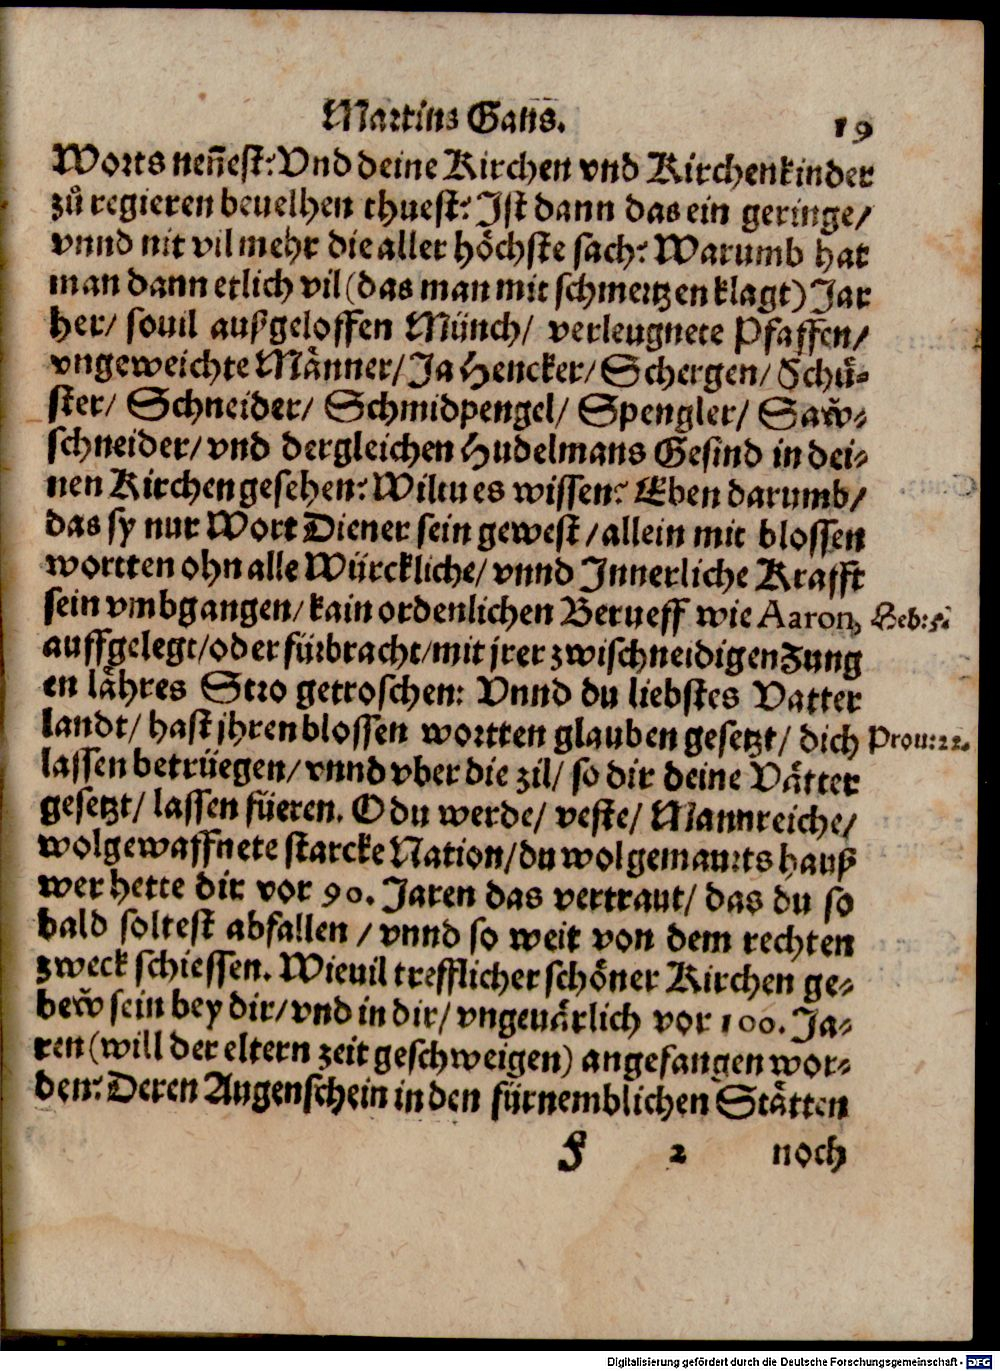 Martins Gans. 19
Worts neñest: Vnd deine Kirchen vnd Kirchenkinder
zů regieren beuelhen thuest: Jst dann das ein geringe/
vnnd nit vil mehr die aller höchste sach: Warumb hat
man dann etlich vil (das man mit schmertzen klagt) Jar
her/ souil außgeloffen Münch/ verleugnete Pfaffen/
vngeweichte Männer/ Ja Hencker/ Schergen/ Schů-
ster/ Schneider/ Schmidpengel/ Spengler/ Saw̌-
schneider/ vnd dergleichen Hudelmans Gesind in dei-
nen Kirchen gesehen: Wiltu es wissen: Eben darumb/
das sy nur Wort Diener sein gewest/ allein mit blossen
wortten ohn alle Würckliche/ vnnd Jnnerliche Krafft
sein vmbgangen/ kain ordenlichen Berueff wie Aaron, Hebr: 5.
auffgelegt/ oder fürbracht/ mit jrer zwischneidigen Zung
en lähres Stro getroschen: Vnnd du liebstes Vatter
landt/ hast jhren blossen wortten glauben gesetzt/ dich Prou: 22.
lassen betrüegen/ vnnd vber die zil/ so dir deine Vätter
gesetzt/ lassen füeren. O du werde/ veste/ Mannreiche/
wolgewaffnete starcke Nation/ du wolgemaurts hauß
wer hette dir vor 90. Jaren das vertraut/ das du so
bald soltest abfallen/ vnnd so weit von dem rechten
zweck schiessen. Wieuil trefflicher schöner Kirchen ge-
bew̌ sein bey dir/ vnd in dir/ vngeuärlich vor 100. Ja-
ren (will der eltern zeit geschweigen) angefangen wor-
den: Deren Augenschein in den fürnemblichen Stätten
F 2 noch
Digitalisierung gefördert durch die Deutsche Forschungsgemeinschaft - DFG